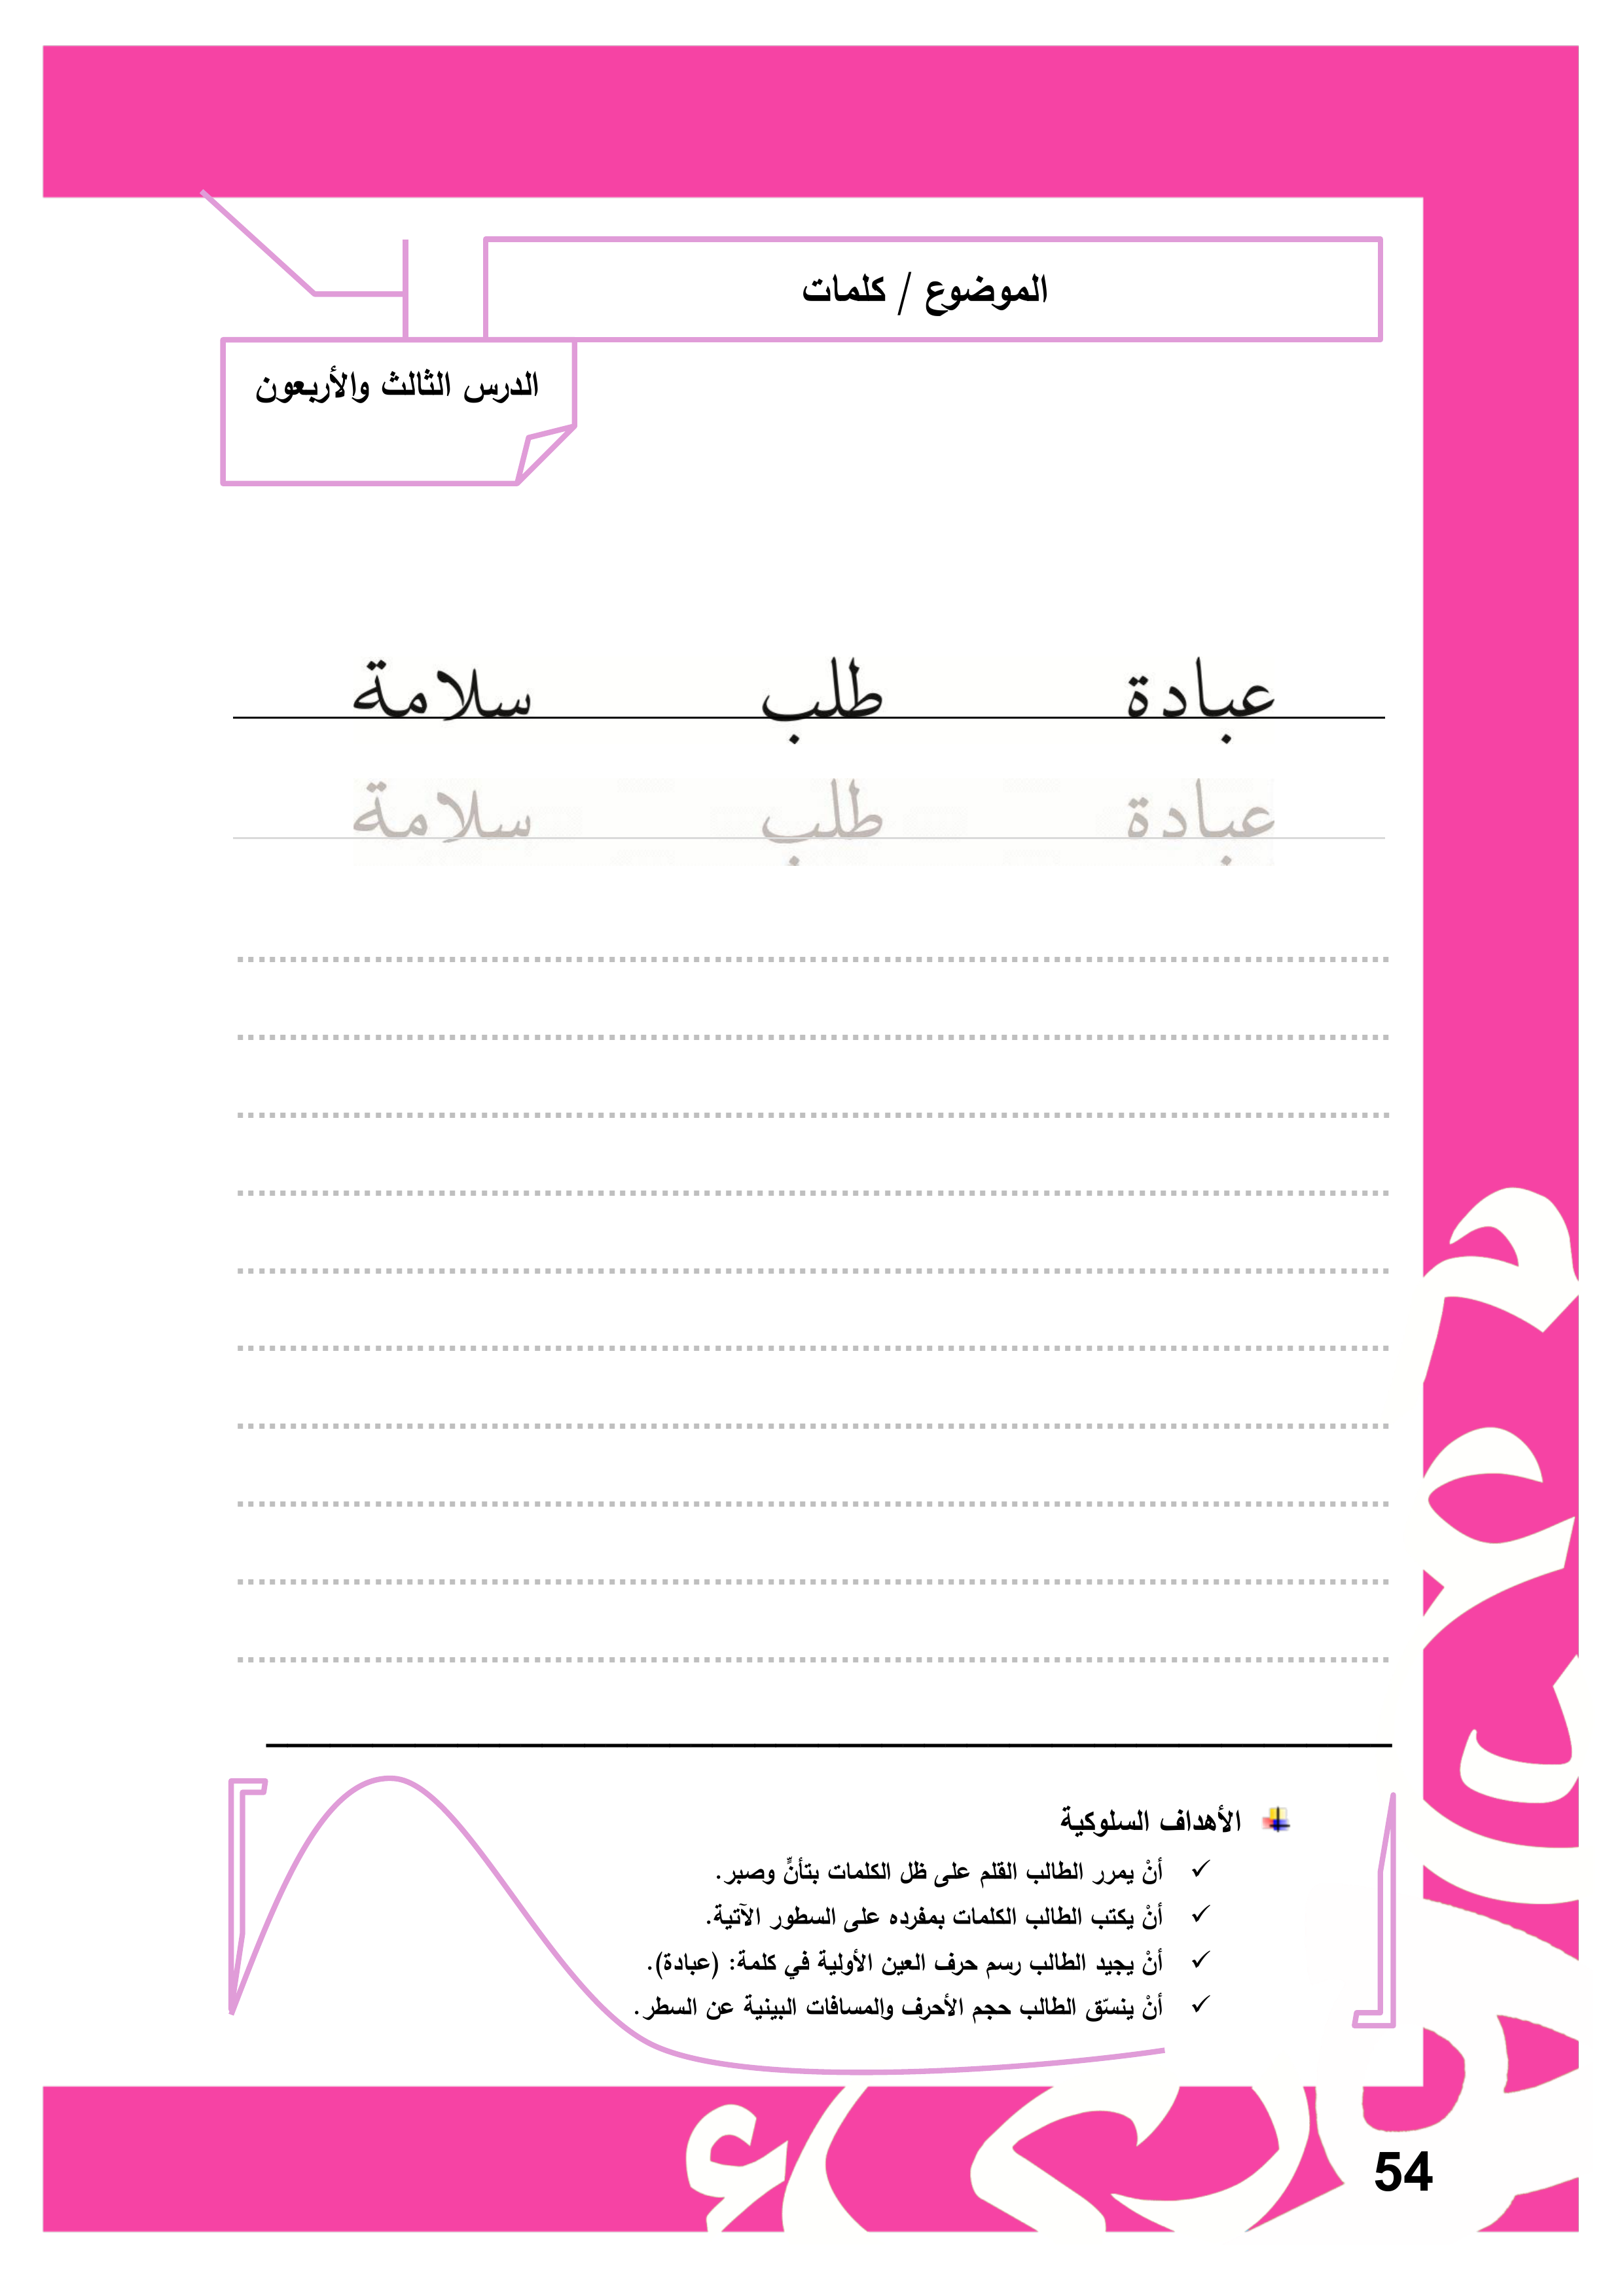 الموضوع / كلمات
الدرس الثالث والأربعون
عبادة طلب سلامة
عبادة طلب سلامة
الأهداف السلوكية
✓ أنْ يمرر الطالب القلم على ظل الكلمات بتأنٍّ وصبر.
✓ أنْ يكتب الطالب الكلمات بمفرده على السطور الآتية.
✓ أنْ يجيد الطالب رسم حرف العين الأولية في كلمة: (عبادة).
✓ أنْ ينسّق الطالب حجم الأحرف والمسافات البينية عن السطر.
54